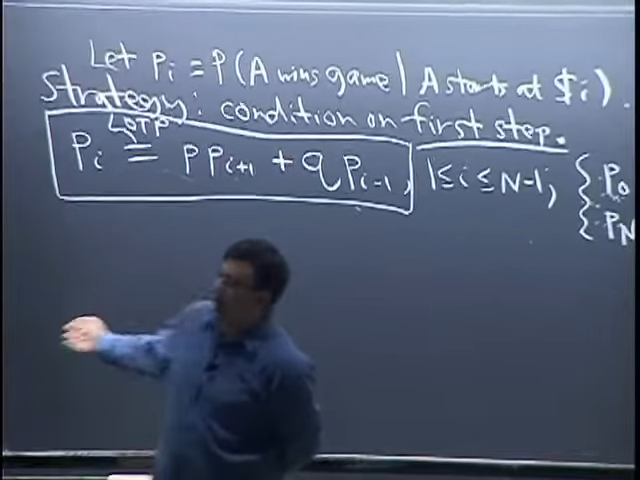 Let pᵢ = P(A wins game | A starts at $i).
Strategy: condition on first step.
LOTP
pᵢ = p pᵢ₊₁ + q pᵢ₋₁, 1 ≤ i ≤ N-1, { p₀
{ p_N